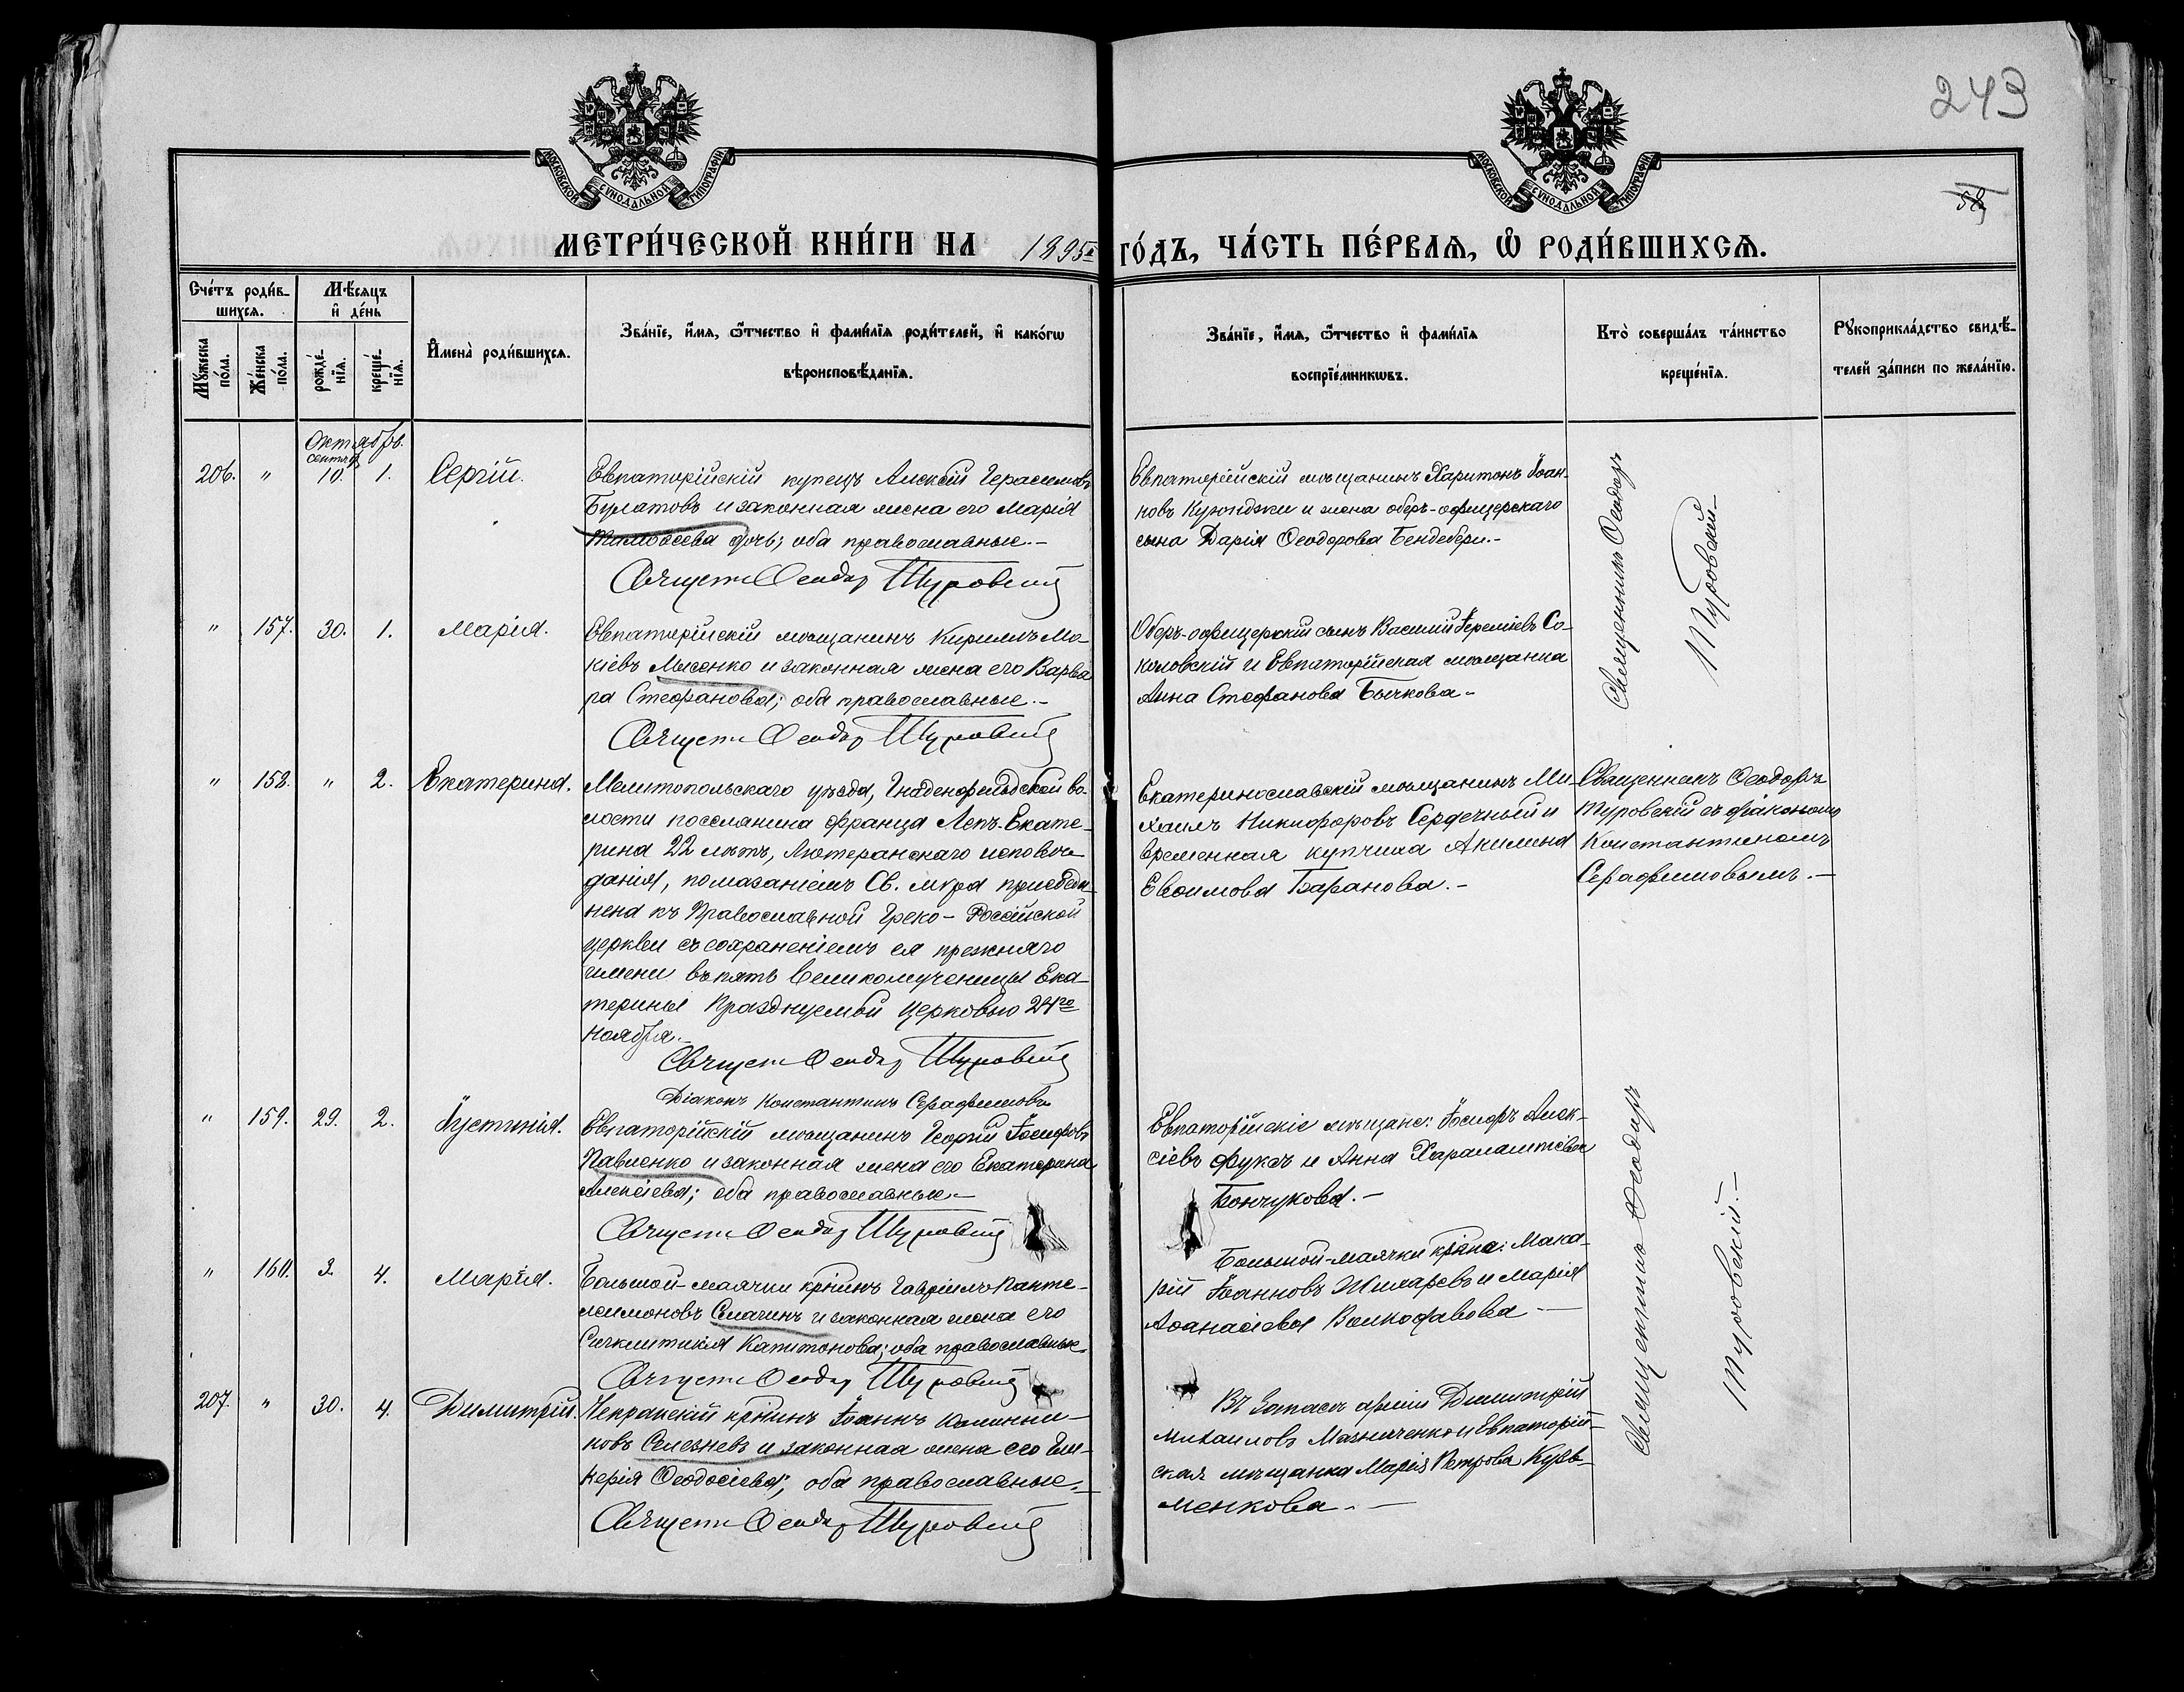 243
58
МОСКОВСКОЙ СѴНОДАЛЬНОЙ ТИПОГРАФІИ
МОСКОВСКОЙ СѴНОДАЛЬНОЙ ТИПОГРАФІИ
МЕТРИ́ЧЕСКОЙ КНИ́ГИ НА 1895й ГО́ДЪ, ЧА́СТЬ ПЕ́РВАЯ, Ѡ РОДИ́ВШИХСЯ.
Сче́тъ роди́в-
шихся.
Мѣ́сяцъ
и҆ де́нь
Мꙋ́жеска
по́ла.
Же́нска
по́ла.
рожде́-
нїя.
креще́-
нїя.
И҆мена̀ роди́вшихся.
Зва́нїе, и҆́мя, ѻ҆́тчество и҆ фами́лїя роди́телей, и҆ како́гѡ
вѣроисповѣ́данїя.
Зва́нїе, и҆́мя, ѻ҆́тчество и҆ фами́лїя
воспрїе́мникѡвъ.
Кто̀ соверша́лъ та́инство
креще́нїя.
Рꙋкоприкла́дство свидѣ́-
телей за́писи по жела́нїю.
Октябрь.
сентяб.
206. " 10. 1. Сергій.
Евпаторійскій купецъ Алексій Герасимовъ
Булатовъ и законная жена его Марія
Тимоѳеева дочь; оба православные.-
Священ. Ѳеодор Туровскій
Евпаторійскій мѣщанинъ Харитонъ Іоан-
новъ Куюнджи и жена оберъ-офицерскаго
сына Дарія Ѳеодорова Бендебери.-
Священникъ Ѳеодоръ
Туровскій-
" 157. 30. 1. Марія.
Евпаторійскій мѣщанинъ Кириллъ Мо-
кіевъ Лысенко и законная жена его Варва
ра Стефановна; оба православные.-
Священ. Ѳеодор Туровскій
Оберъ-офицерскій сынъ Василій Іереміевъ Со-
коловскій и Евпаторійская мѣщанка
Анна Стефанова Бычкова-
" 158. " 2. Екатерина.
Мелитопольскаго уѣзда, Гнаденфельдской во-
лости поселянина Франца Лепъ. Екате-
рина 22 лѣтъ, Лютеранскаго исповѣ-
данія, помазаніемъ Св. мѵра присоеди-
нена къ Православной Греко-Россійской
церкви съ сохраненіемъ ея прежняго
имени въ пять Великомученицы Ека-
терины Празднуемой Церковью 24го
Ноября.-
Священ. Ѳеодор Туровскій
Діаконъ Константинъ Серафимовъ
Екатеринославскій мѣщанинъ Ми-
хаилъ Никифоровъ Сердечный и
временная купчиха Акилина
Евѳимова Баранова.-
Священникъ Ѳеодоръ
Туровскій съ діакономъ
Константиномъ
Серафимовымъ.-
" 159. 29. 2. Іустинія.
Евпаторійскій мѣщанинъ Георгій Іосифовъ
Павленко и законная жена его Екатерина
Алексіева; оба православные.-
Священ. Ѳеодор Туровскій
Евпаторійскіе мѣщане: Іосифъ Алек-
сіевъ Фуксъ и Анна Харалампіева
Бончукова.-
Священникъ Ѳеодоръ
Туровскій.-
" 160. 3. 4. Марія.
Большой-маячки кр҃нинъ Гавріилъ Панте-
леимоновъ и законная жена его
Синклитикія Капитонова; оба православные.
Священ. Ѳеодор Туровскій
Большой-маячки кр҃нна: Мака-
рій Іоанновъ Жихаревъ и Марія
Аѳанасіева Волкодавова-
207. " 30. 4. Димитрій.
кр҃нинъ Іоаннъ
новъ Селезневъ и законная жена его Гли-
керія Ѳеодосіева; оба православные.-
Священ. Ѳеодор Туровскій
Въ Запасѣ арміи Димитрій
Михаиловъ Мазниченко и Евпаторій-
ская мѣщанка Марія Петрова Кузь-
менкова.-